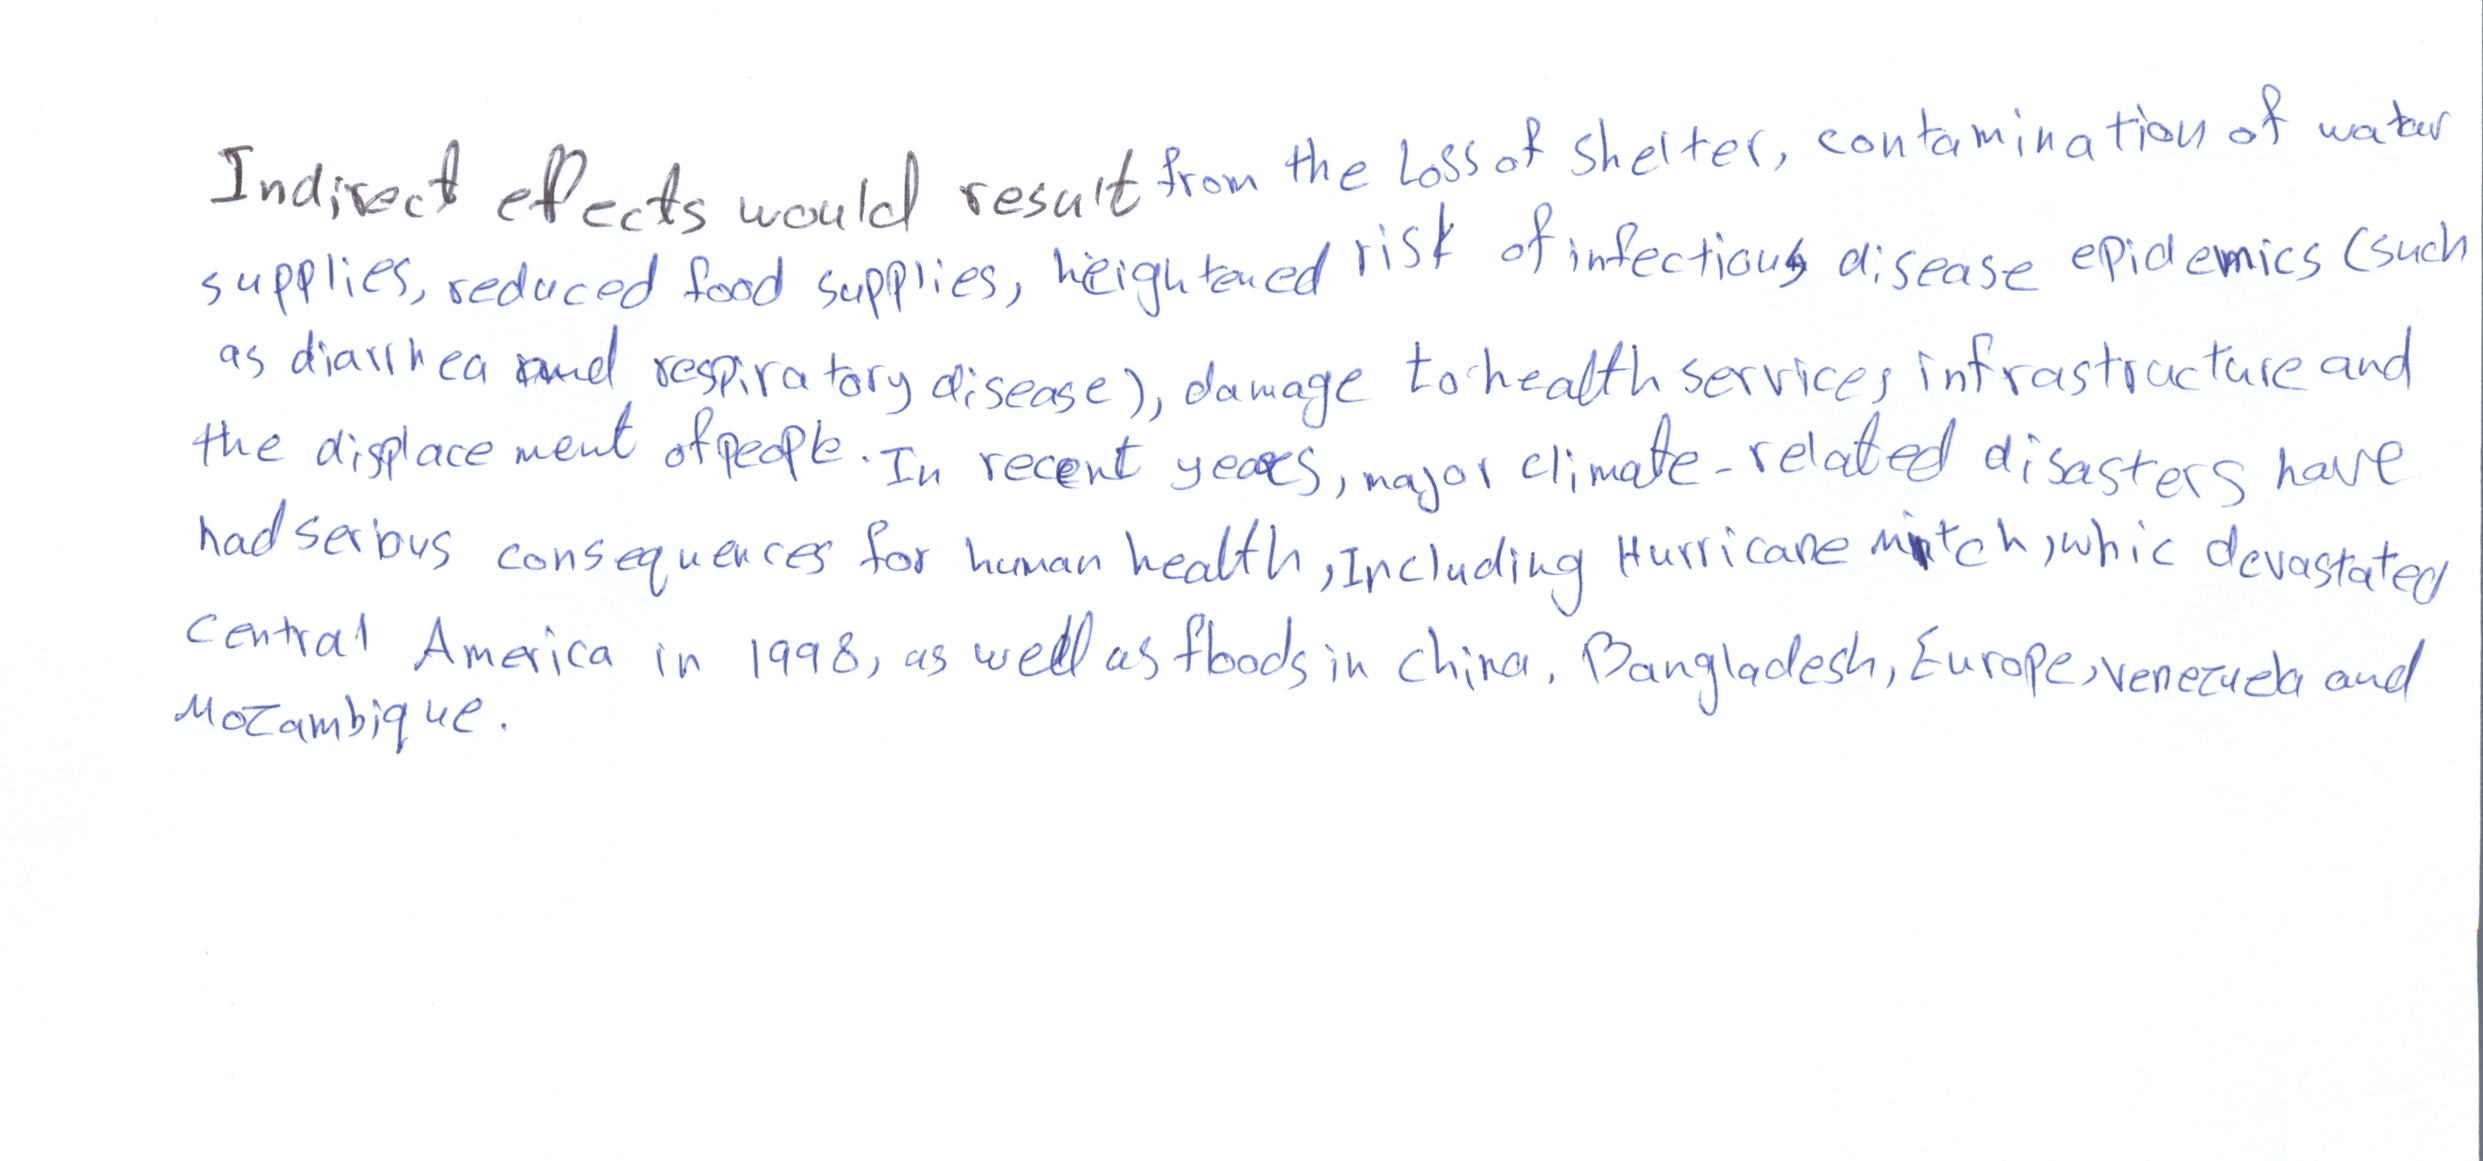 Indirect effects would result from the Loss of shelter, contamination of water
supplies, reduced food supplies, heightened risk of infectious disease epidemics (such
as diarrhea and respiratory disease), damage to health services infrastructure and
the displacement of people. In recent years, major climate-related disasters have
had serious consequences for human health, Including Hurricane mitch, whic devastated
Central America in 1998, as well as floods in china, Bangladesh, Europe, venezuela and
Mozambique.